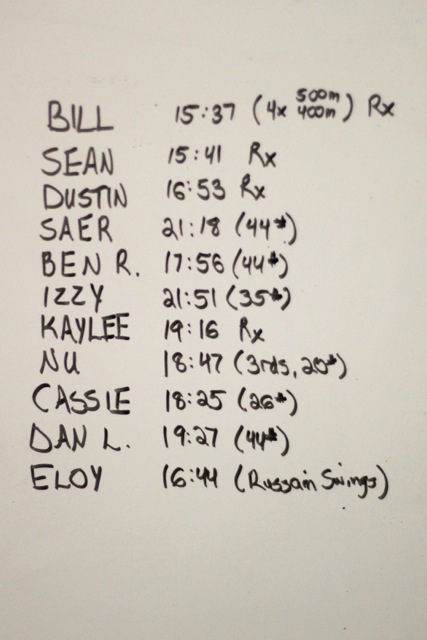 BILL 15:37 (4x 500m 400m) Rx
SEAN 15:41 Rx
DUSTIN 16:53 Rx
SAER 21:18 (44#)
BEN R. 17:56 (44#)
IZZY 21:51 (35#)
KAYLEE 19:16 Rx
NU 18:47 (3rds, 20#)
CASSIE 18:25 (26#)
DAN L. 19:27 (44#)
ELOY 16:44 (Russain Swings)